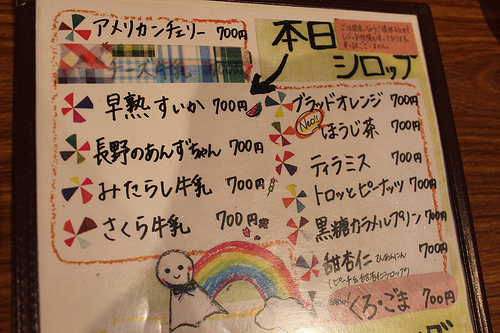 アメリカンチェリー 700円
チーズ牛乳
早熟すいか 700円
長野のあんずちゃん 700円
みたらし牛乳 700円
さくら牛乳 700円
本日
シロップ
ブラッドオレンジ 700円
New!!
ほうじ茶 700円
ティラミス 700円
トロッとピーナッツ 700円
黒糖カラメルプリン 700円
甜杏仁 700円
くろ・ごま 700円